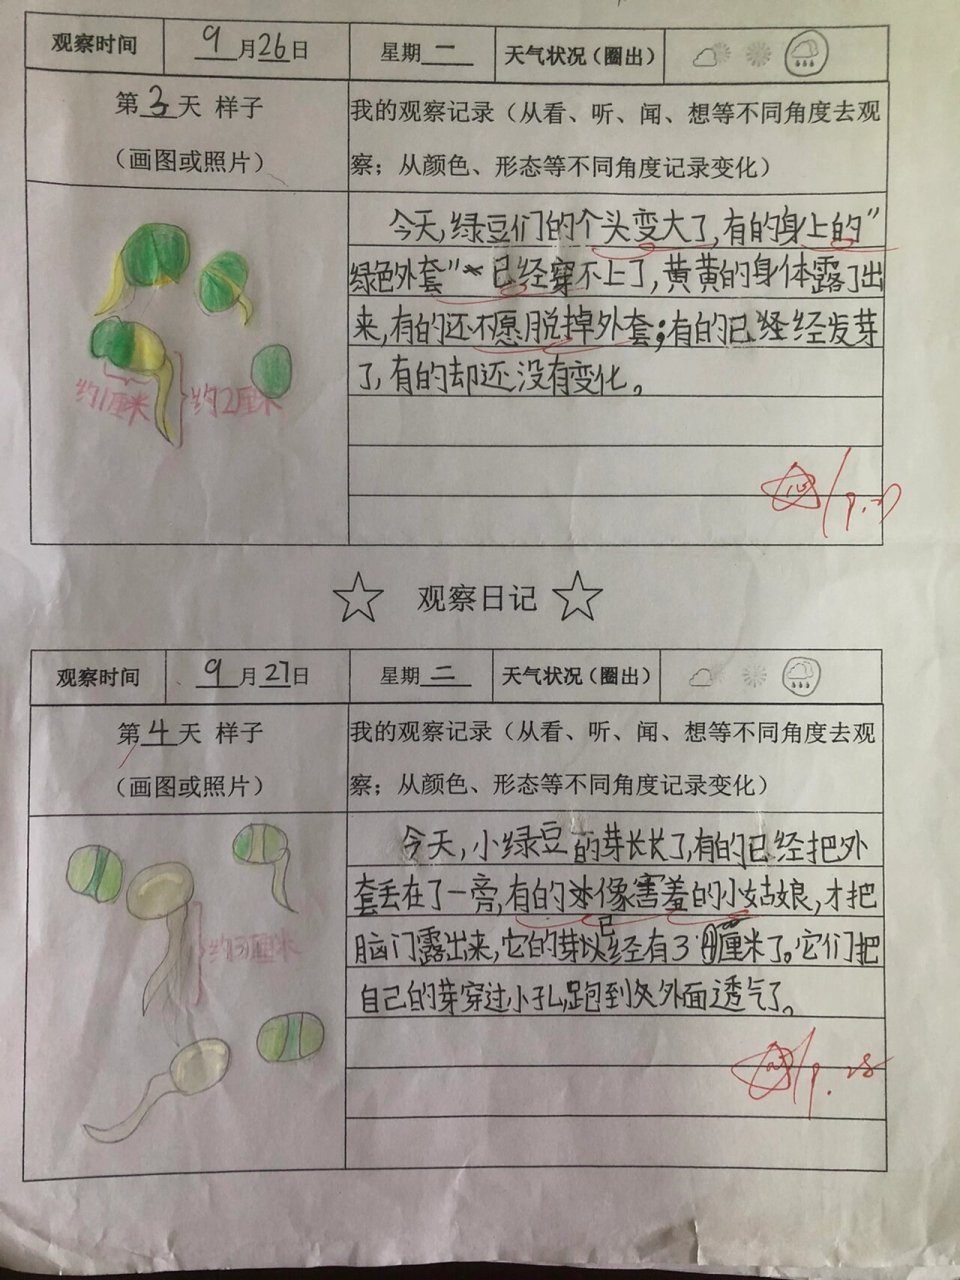 观察时间 9月26日 星期二 天气状况（圈出）
第3天 样子
（画图或照片）
我的观察记录（从看、听、闻、想等不同角度去观
察；从颜色、形态等不同角度记录变化）
今天，绿豆们的个头变大了，有的身上的"
绿色外套"已经穿不上了，黄黄的身体露了出
来，有的还不愿脱掉外套；有的已经经发芽
了，有的却还没有变化。
约1厘米
约2厘米
观察日记
观察时间 9月27日 星期二 天气状况（圈出）
第4天 样子
（画图或照片）
我的观察记录（从看、听、闻、想等不同角度去观
察；从颜色、形态等不同角度记录变化）
今天，小绿豆的芽长长了，有的已经把外
套丢在了一旁，有的像害羞的小姑娘，才把
脑门露出来，它的芽已经有3厘米了。它们把
自己的芽穿过小孔，跑到外面透气了。
约3厘米